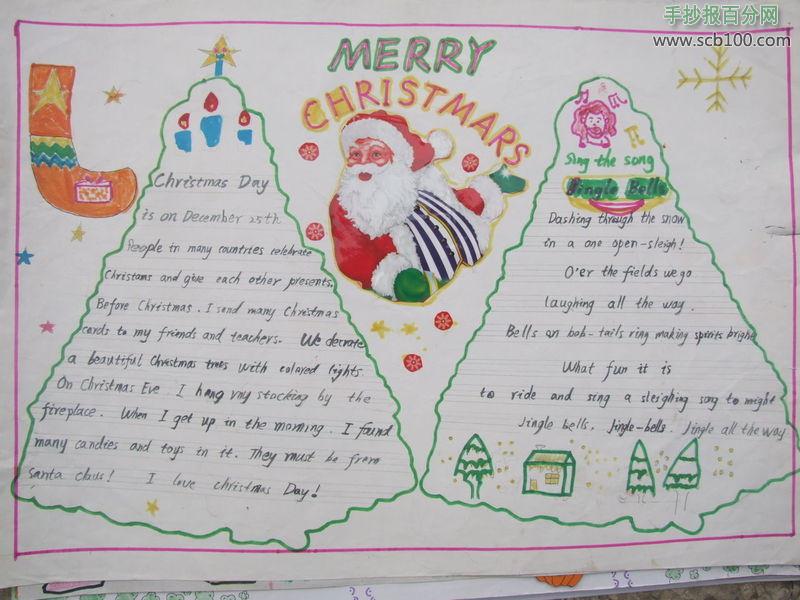 手抄报百分网
www.scb100.com
MERRY
CHRISTMARS
Christmas Day
is on December 25th.
People in many countries celebrate
Christams and give each other presents.
Before Christmas. I send many Christmas
cards to my friends and teachers. We decrate
a beautiful Christmas trees with colared lights
On Christmas Eve. I hang my stocking by the
fireplace. When I get up in the morning. I found
many candies and toys in it. They must be from
santa claus! I love christmas Day!
Sing the song
Jingle Bells
Dashing through the snow
in a one open-sleigh!
O'er the fields we go
laughing all the way.
Bells on bob-tails ring making spirits bright
What fun it is
to ride and sing a sleighing song to night
Jingle bells. Jingle-bells. Jingle all the way